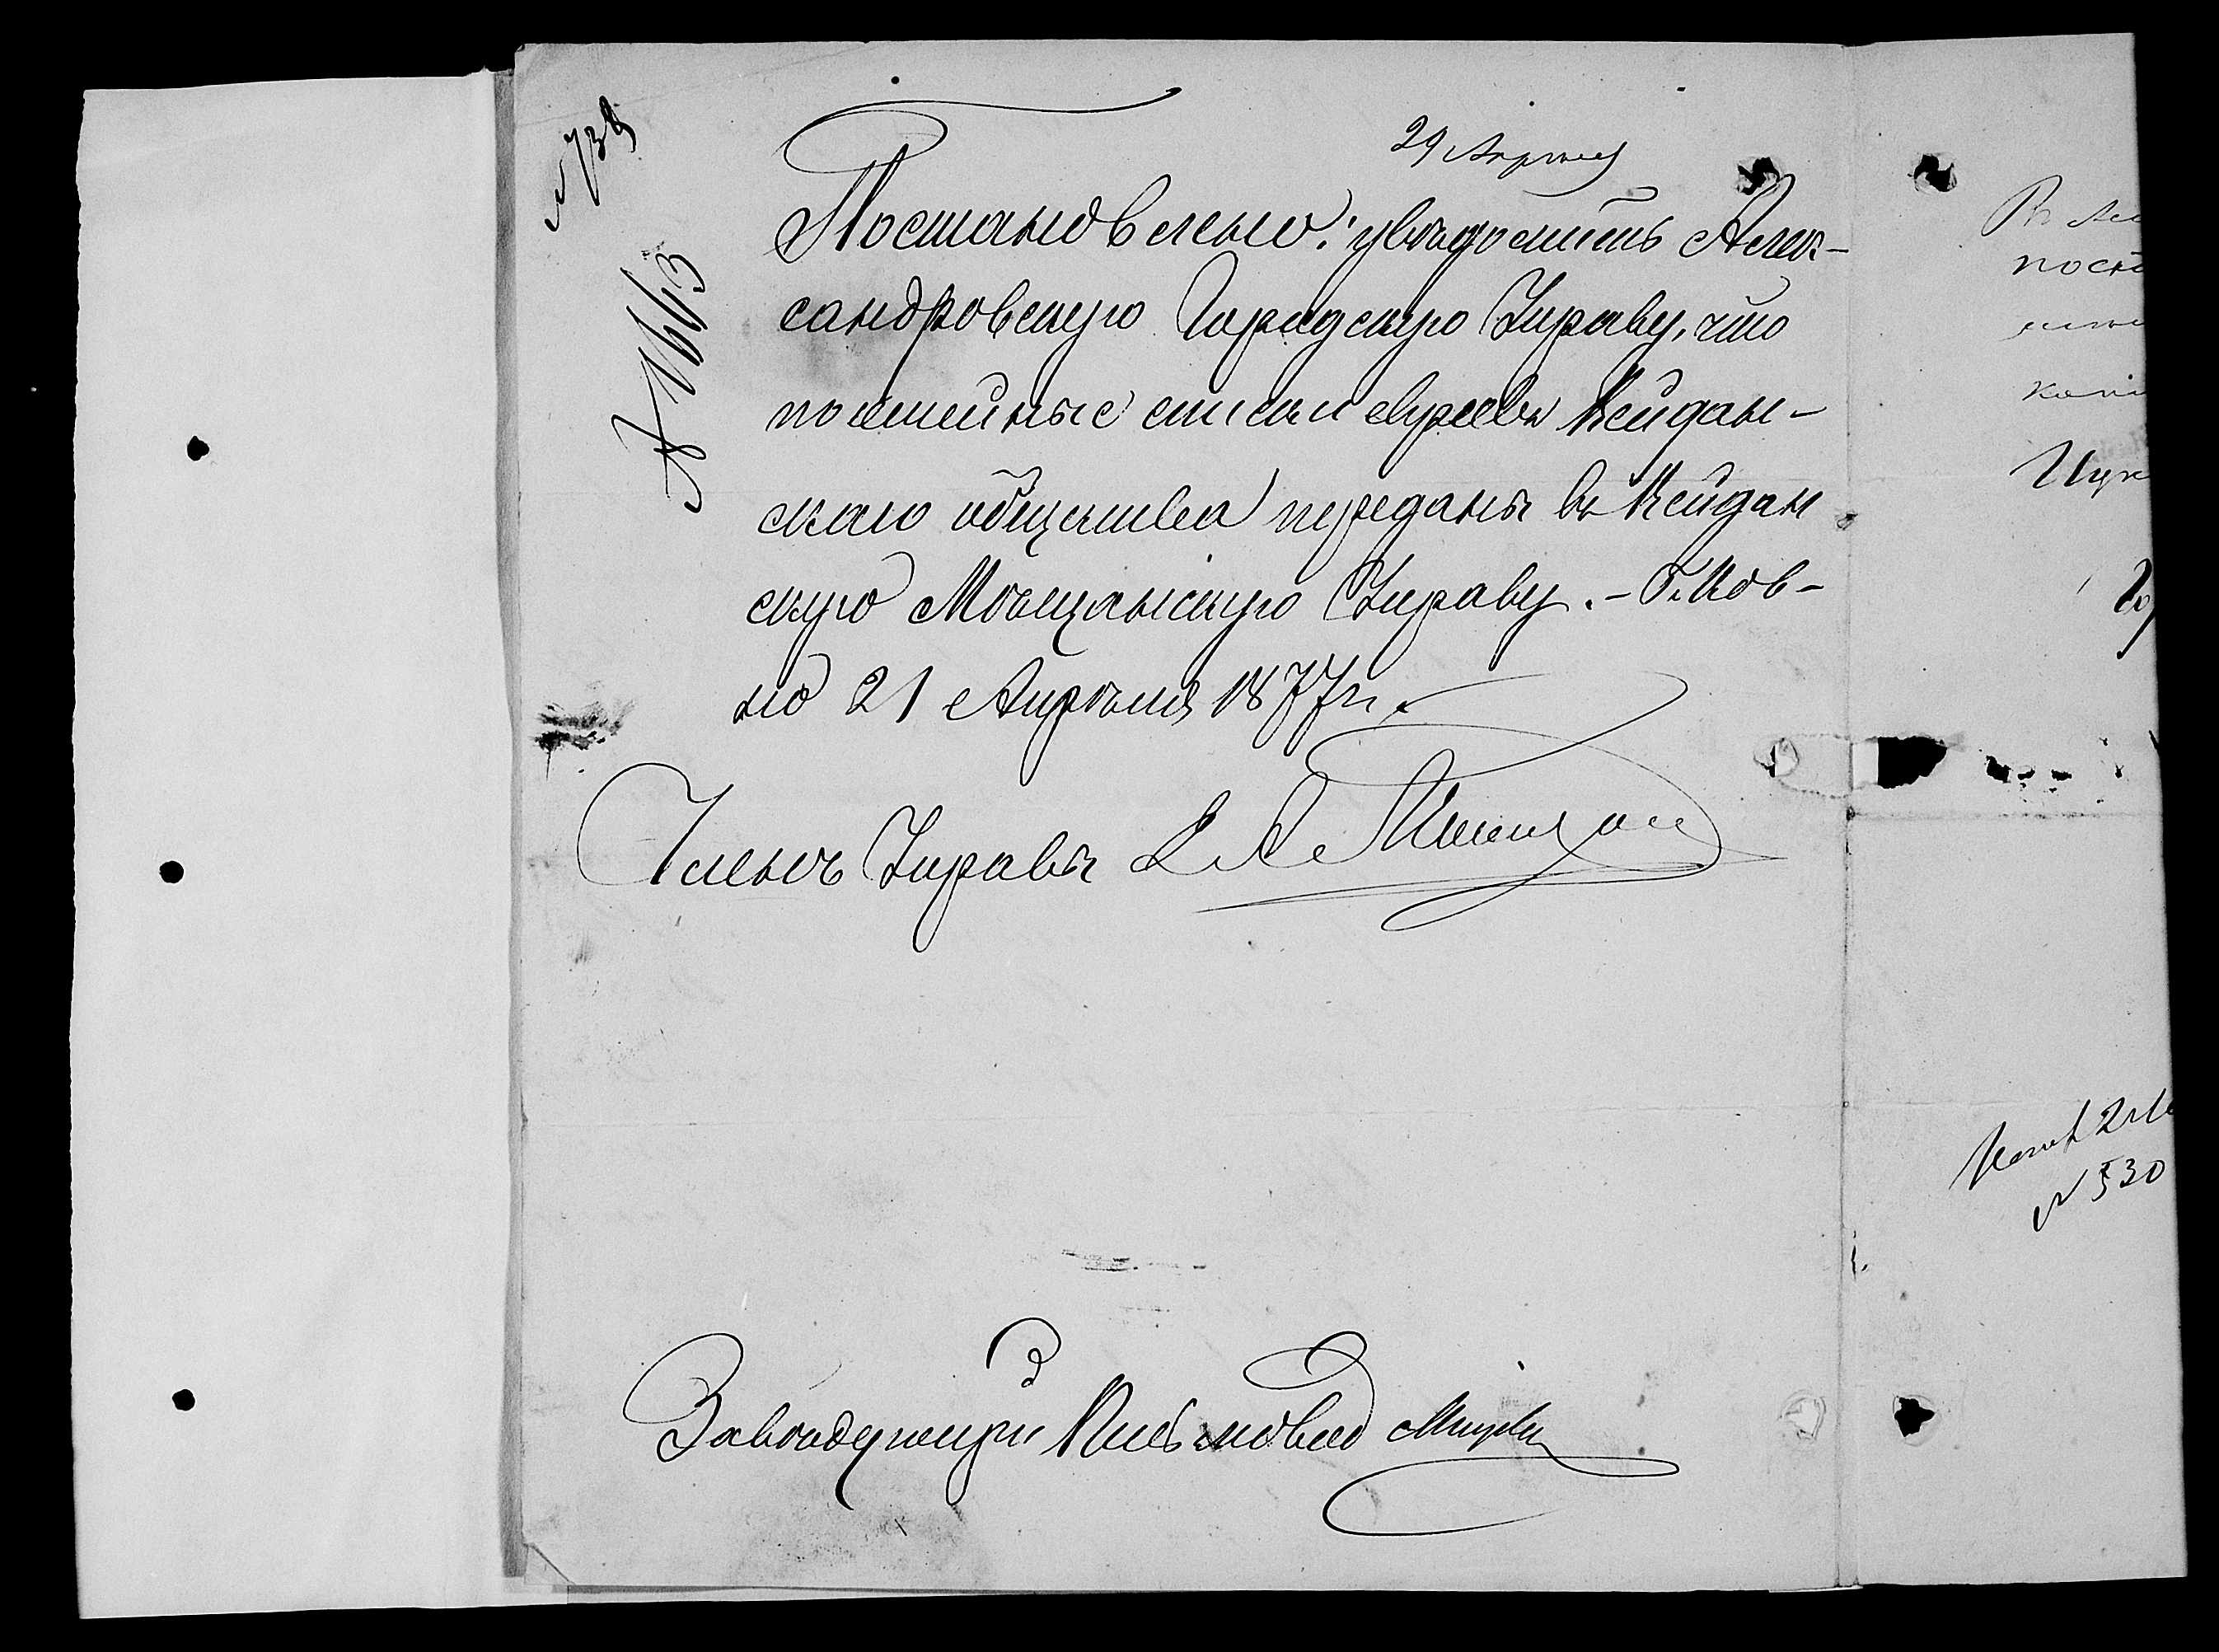 № 739
29 Апрѣля
№ 1663
Постановлено: увѣдомить Алек-
сандровскую Городскую Управу, что
посемейные списки евреевъ Кейдан-
скаго общества переданы въ Кейдан
скую Мѣщанскую Управу. - Г. Ков-
но 21 Апрѣля 1877 г.
Членъ Управы
Завѣдующій Письмовод
№ 530